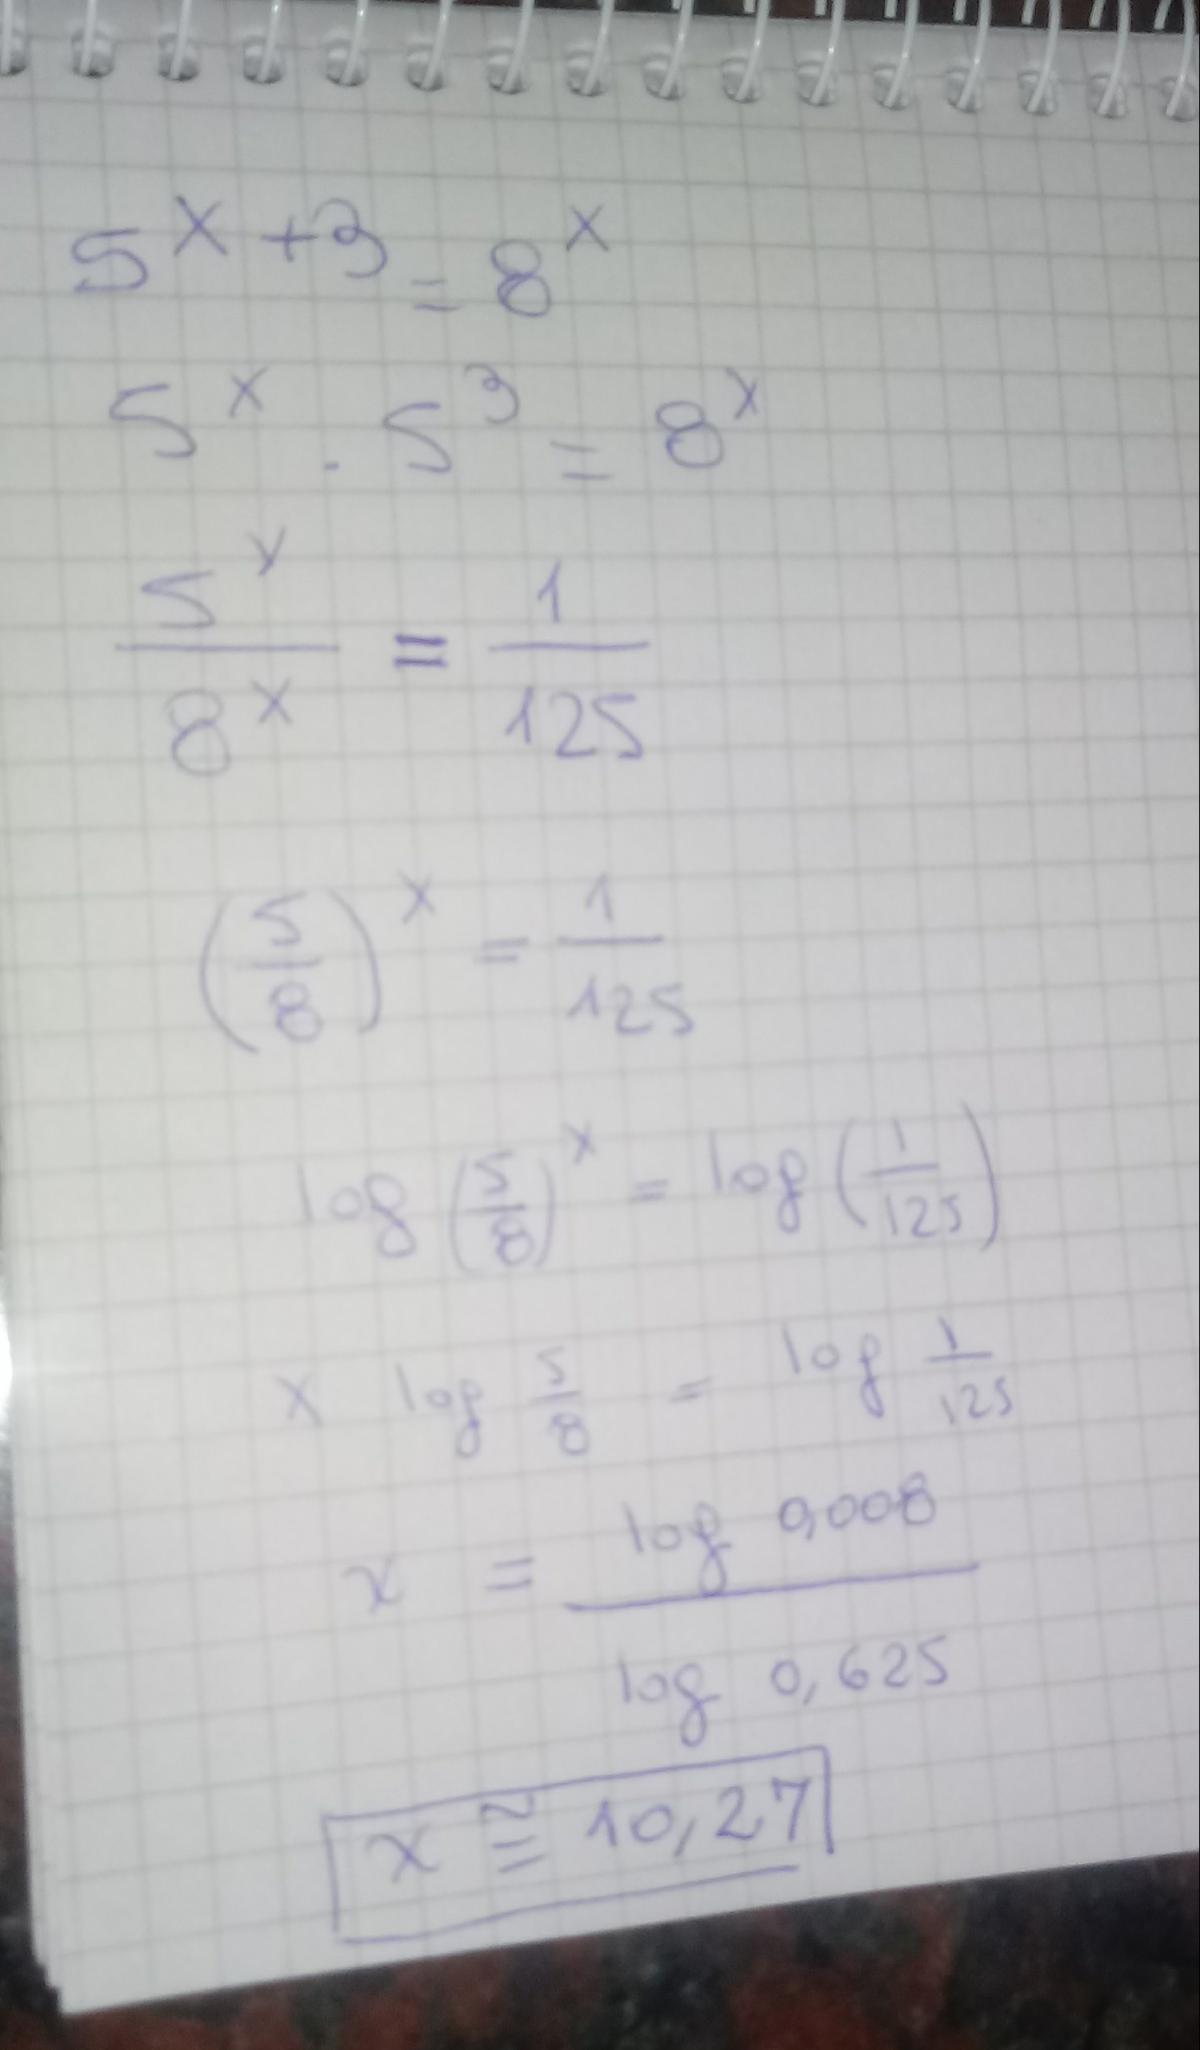 5^x+3 = 8^x
5^x . 5^3 = 8^x
5^x/8^x = 1/125
(5/8)^x = 1/125
log (5/8)^x = log (1/125)
x log 5/8 = log 1/125
x = log 0,008 / log 0,625
x ≅ 10,27